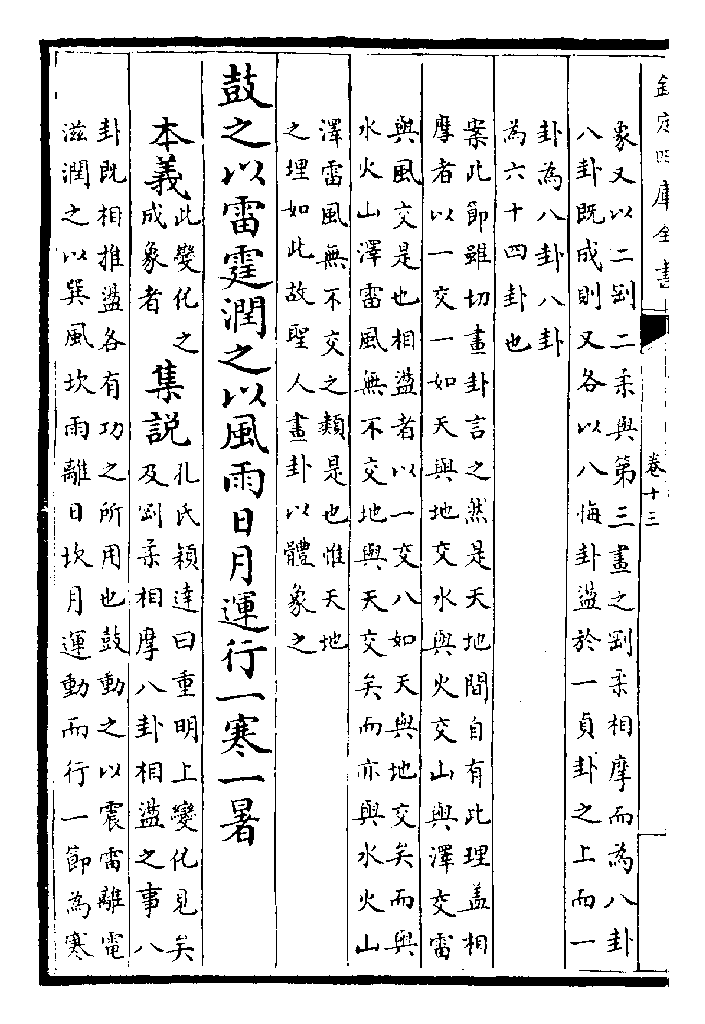 欽定四庫全書
卷十三
象又以二剛二柔與第三畫之剛柔相摩而為八卦
八卦既成則又各以八悔卦盪於一貞卦之上而一
卦為八卦八卦
為六十四卦也
案此節雖切畫卦言之然是天地間自有此理盖相
摩者以一交一如天與地交水與火交山與澤交雷
與風交是也相盪者以一交八如天與地交矣而與
水火山澤雷風無不交地與天交矣而亦與水火山
澤雷風無不交之類是也惟天地
之理如此故聖人畫卦以體象之
鼓之以雷霆潤之以風雨日月運行一寒一暑
本義此變化之
成象者
集説孔氏穎達曰重明上變化見矣
及剛柔相摩八卦相盪之事八
卦既相推盪各有功之所用也鼓動之以震雷離電
滋潤之以巽風坎雨離日坎月運動而行一節為寒